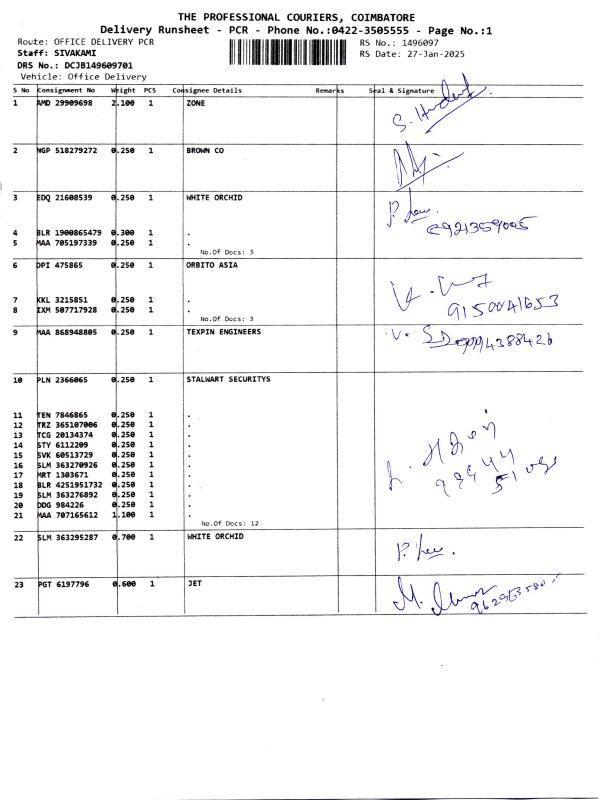 THE PROFESSIONAL COURIERS, COIMBATORE
Delivery Runsheet - PCR - Phone No.:0422-3505555 - Page No.:1
Route: OFFICE DELIVERY PCR RS No.: 1496097
Staff: SIVAKAMI RS Date: 27-Jan-2025
DRS No.: DCJB149609701
Vehicle: Office Delivery
S No Consignment No Weight PCS Consignee Details Remarks Seal & Signature
1 AMD 29909698 2.100 1 ZONE
2 NGP 518279272 0.250 1 BROWN CO
3 EDQ 21608539 0.250 1 WHITE ORCHID
4 BLR 1900865479 0.300 1 .
5 MAA 705197339 0.250 1 .
No.Of Docs: 3
6 DPI 475865 0.250 1 ORBITO ASIA
7 KKL 3215851 0.250 1 .
8 IXM 507717928 0.250 1 .
9150041653
No.Of Docs: 3
9 MAA 868948805 0.250 1 TEXPIN ENGINEERS
10 PLN 2366065 0.250 1 STALWART SECURITYS
11 TEN 7846865 0.250 1 .
12 TRZ 365107006 0.250 1 .
13 TCG 20134374 0.250 1 .
14 STY 6112209 0.250 1 .
15 SVK 60513729 0.250 1 .
16 SLM 363270926 0.250 1 .
17 MRT 1303671 0.250 1 .
18 BLR 4251951732 0.250 1 .
19 SLM 363276892 0.250 1 .
20 DDG 984226 0.250 1 .
21 MAA 707165612 1.100 1 .
No.Of Docs: 12
22 SLM 363295287 0.700 1 WHITE ORCHID
23 PGT 6197796 0.600 1 JET